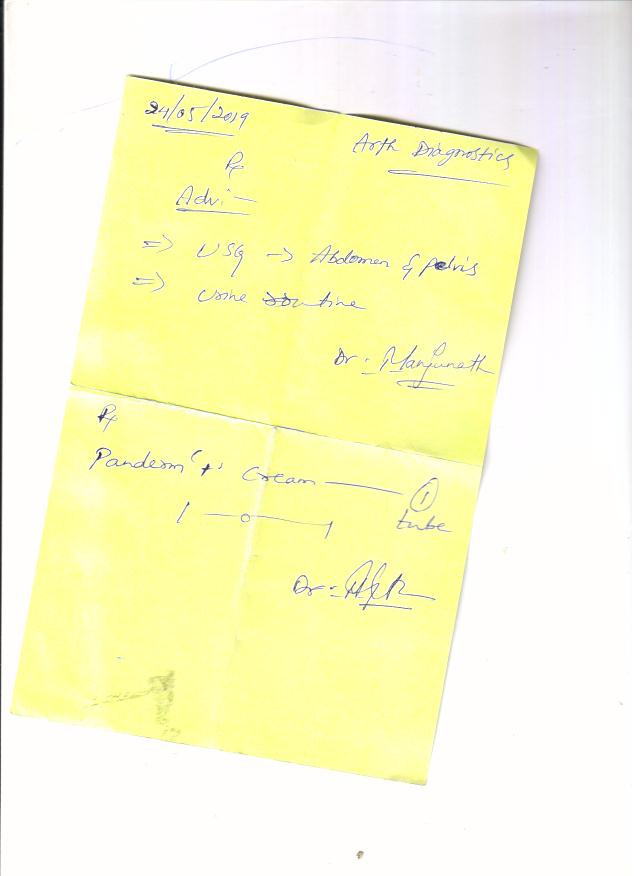 24/05/2019
Arth Diagnostics
Rx
Advi -
=> USG -> Abdomen & pelvis
=> Urine routine
Dr : Manjunath
Rx
Panderm '+' Cream — 1 tube
1 — o — 1
Dr :